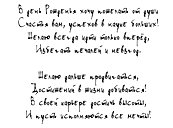 В день Рожденья хочу пожелать от души
Счастья вам, успехов в науке больших!
Желаю всегда идти только вперёд,
Избегать печалей и невзгод.
Желаю дальше продвигаться,
Достижений в жизни добиваться!
В своей карьере достичь высоты,
И пусть исполняются все мечты!